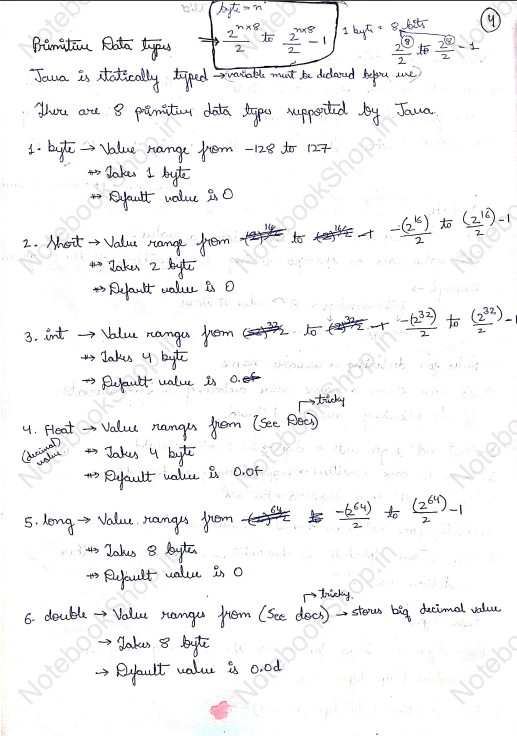 byte = n
4
2^(n×8)/2 to 2^(n×8)/2 - 1
1 byte = 8 bits
2^(8)/2 to 2^(8)/2 - 1
Primitive Data types ⇒
Java is statically typed → variable must be declared before use)
There are 8 primitive data types supported by Java.
1. byte → Value range from -128 to 127
↦ Takes 1 byte
↦ Default value is 0
2. Short → Value range from to -(2^16)/2 to (2^16)/2 - 1
↦ Takes 2 byte
↦ Default value is 0
3. int → Value ranges from to -(2^32)/2 to (2^32)/2 - 1
↦ Takes 4 byte
→ Default value is 0.
→ tricky
4. Float → Value ranges from (See Docs)
(decimal value)
↦ Takes 4 byte
↦ Default value is 0.0f
5. long → Value ranges from -(2^64)/2 to (2^64)/2 - 1
↦ Takes 8 bytes
↦ Default value is 0
→ tricky
6. double → Value ranges from (See docs) → stores big decimal value
→ Takes 8 byte
→ Default value is 0.0d
NotebookShop.in